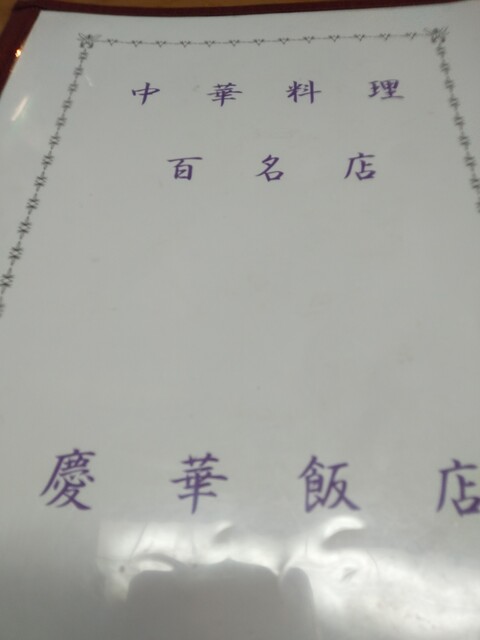 中華料理
百名店
慶華飯店